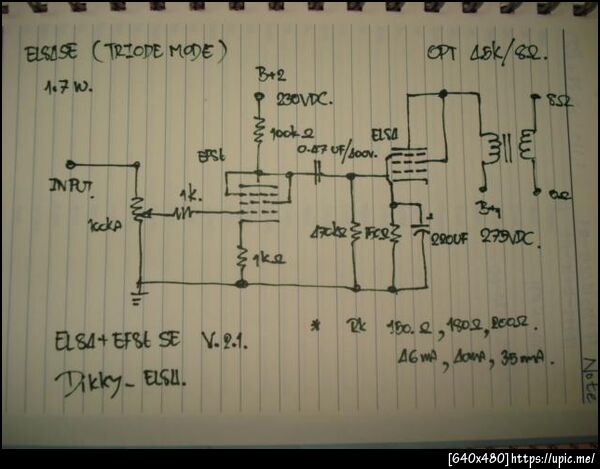 EL84SE (TRIODE MODE)
OPT 4.5k/8Ω.
1.7 W.
B+2
230VDC.
100kΩ
EF86
0.47UF/400V.
EL84
8Ω
INPUT.
100kA
1k.
1kΩ
470kΩ
150Ω
+
220UF
B+1
275VDC.
0Ω
* Rk 150Ω, 180Ω, 200Ω.
46mA, 40mA, 35mA.
EL84+EF86 SE V.2.1.
Dikky_EL84.
Note
[640x480]https://upic.me/